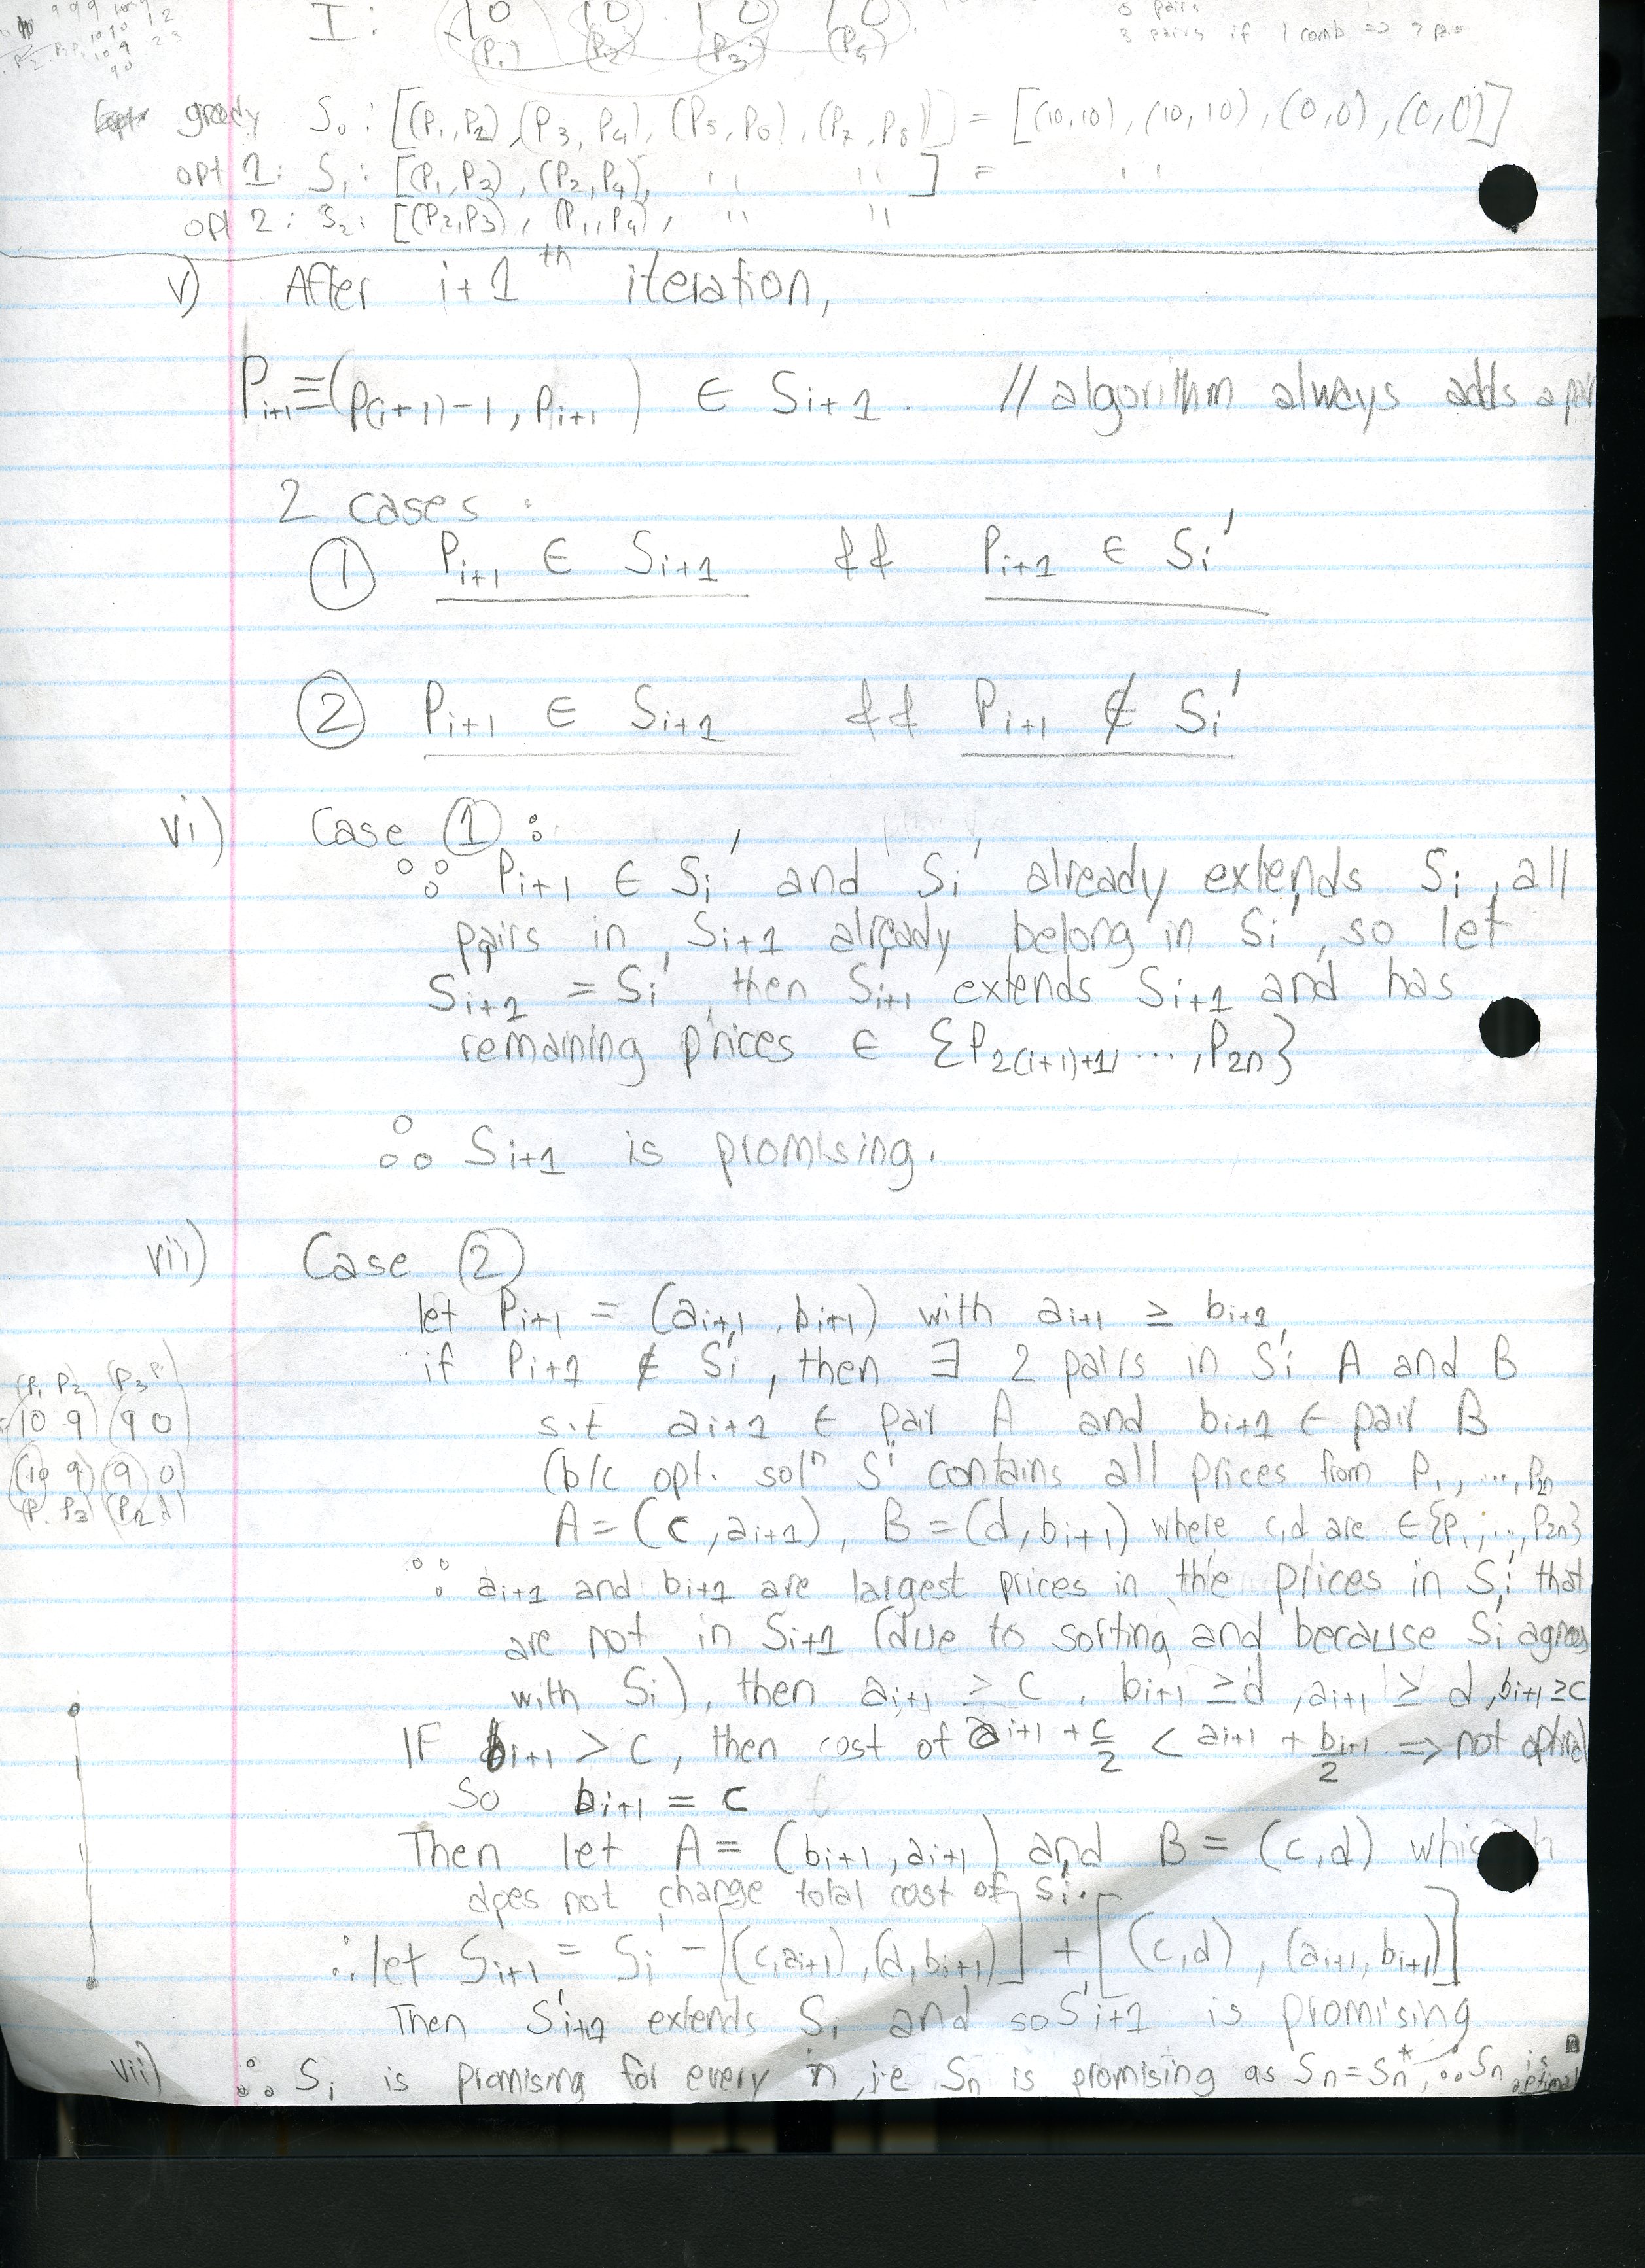 I: 10 10 10 10
(P1) (P2) (P3) (P4)
3 pairs if 1 comb =>
greedy S0: [(P1,P2),(P3,P4),(P5,P6),(P7,P8)] = [(10,10),(10,10),(0,0),(0,0)]
opt 1: S1: [(P1,P3),(P2,P4), '' '' ] = ''
opt 2: S2: [(P2,P3), (P1,P4), '' ''
v) After i+1 th iteration,
Pi+1 ≡ (P(i+1)-1, Pi+1) ∈ Si+1. // algorithm always adds a pair
2 cases:
① Pi+1 ∈ Si+1 && Pi+1 ∈ Si'
② Pi+1 ∈ Si+1 && Pi+1 ∉ Si'
vi) Case ① :
∵ Pi+1 ∈ Si' and Si' already extends Si, all
pairs in Si+1 already belong in Si', so let
Si+1' = Si', then Si+1' extends Si+1 and has
remaining prices ∈ {P2(i+1)+1, ..., P2n}
∴ Si+1 is promising.
vii) Case ②
let Pi+1 = (ai+1, bi+1) with ai+1 ≥ bi+1
if Pi+1 ∉ Si', then ∃ 2 pairs in Si' A and B
s.t ai+1 ∈ pair A and bi+1 ∈ pair B
(P1 P2) (P3 P4)
(10 9) (9 0)
(10 9) (9 0)
P1 P3 (P2
(b/c opt. solⁿ S' contains all prices from P1, ..., P2n
A = (c, ai+1), B = (d, bi+1) where c,d are ∈ {P1, ..., P2n}
∵ ai+1 and bi+1 are largest prices in the prices in Si' that
are not in Si+1 (due to sorting and because Si' agrees
with Si), then ai+1 ≥ c, bi+1 ≥ d, ai+1 ≥ d, bi+1 ≥ c
IF bi+1 > c, then cost of ai+1 + c/2 < ai+1 + bi+1/2 => not optimal
So bi+1 = c
Then let A = (bi+1, ai+1) and B = (c,d) which
does not change total cost of Si'.
∴ let Si+1' = Si' - [(c,ai+1), (d,bi+1)] + [(c,d), (ai+1, bi+1)]
Then S'i+1 extends Si and so S'i+1 is promising
vii) ∴ Si is promising for every n, i.e Sn is promising as Sn = Sn*, ∴ Sn is optimal